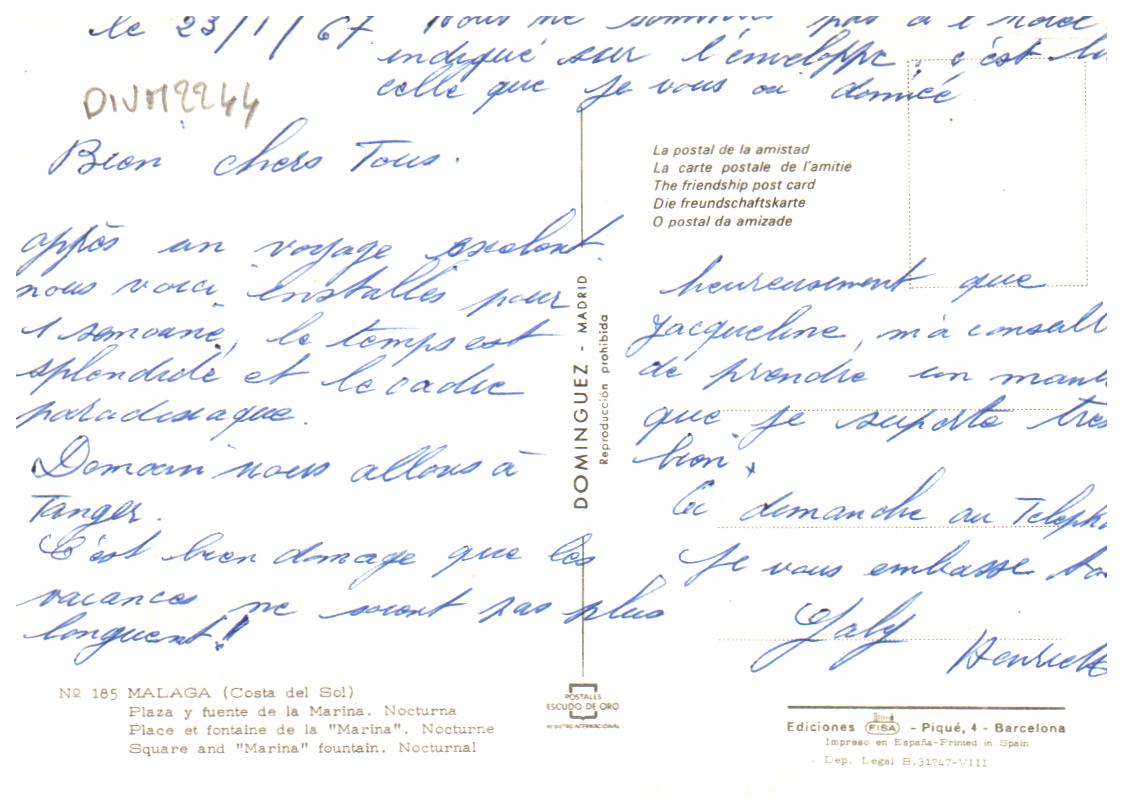 le 23/1/67. Nous ne sommes pas à l'hotel
indiqué sur l'enveloppe, c'est
celle que je vous ai donnée
DIVM2244
Bien chers Tous.
après un voyage exelent
nous voici installés pour
1 semaine, le temps est
splendide et le cadre
paradisiaque.
Demain nous allons à
Tanger.
C'est bien domage que les
vacances ne soient pas plus
longuent!
La postal de la amistad
La carte postale de l'amitié
The friendship post card
Die freundschaftskarte
O postal da amizade
DOMINGUEZ - MADRID
Reproducción prohibida
heureusement que
Jacqueline, m'a conseill
de prendre un mant
que je suporte tres
bien.
a demanche au Telepho
je vous embasse
Henriett
Nº 185 MALAGA (Costa del Sol)
Plaza y fuente de la Marina. Nocturna
Place et fontaine de la "Marina". Nocturne
Square and "Marina" fountain. Nocturnal
POSTALES
ESCUDO DE ORO
REGISTRO INTERNACIONAL
Ediciones FISA - Piqué, 4 - Barcelona
Impreso en España-Printed in Spain
Dep. Legal B.31747-VIII